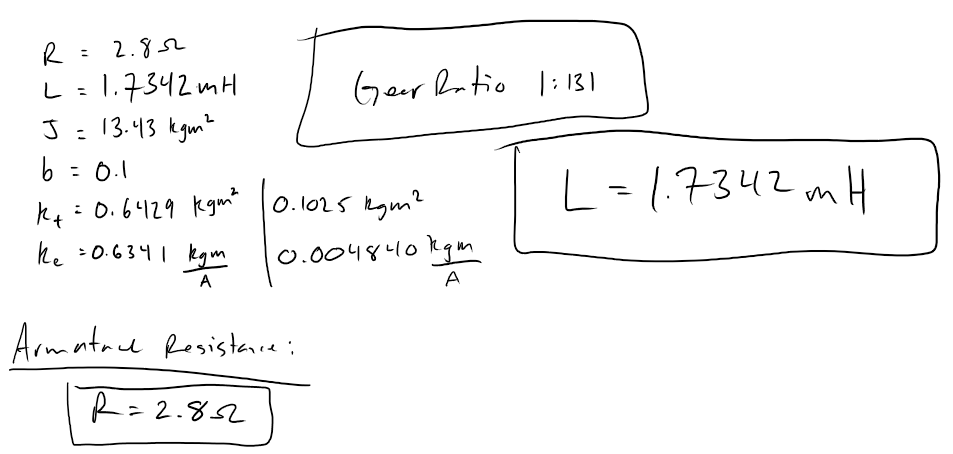 R = 2.8Ω
L = 1.7342 mH
J = 13.43 kgm²
b = 0.1
kt = 0.6429 kgm² | 0.1025 kgm²
ke = 0.6341 kgm/A | 0.004840 kgm/A
Gear Ratio 1:131
L = 1.7342 mH
Armature Resistance:
R = 2.8Ω